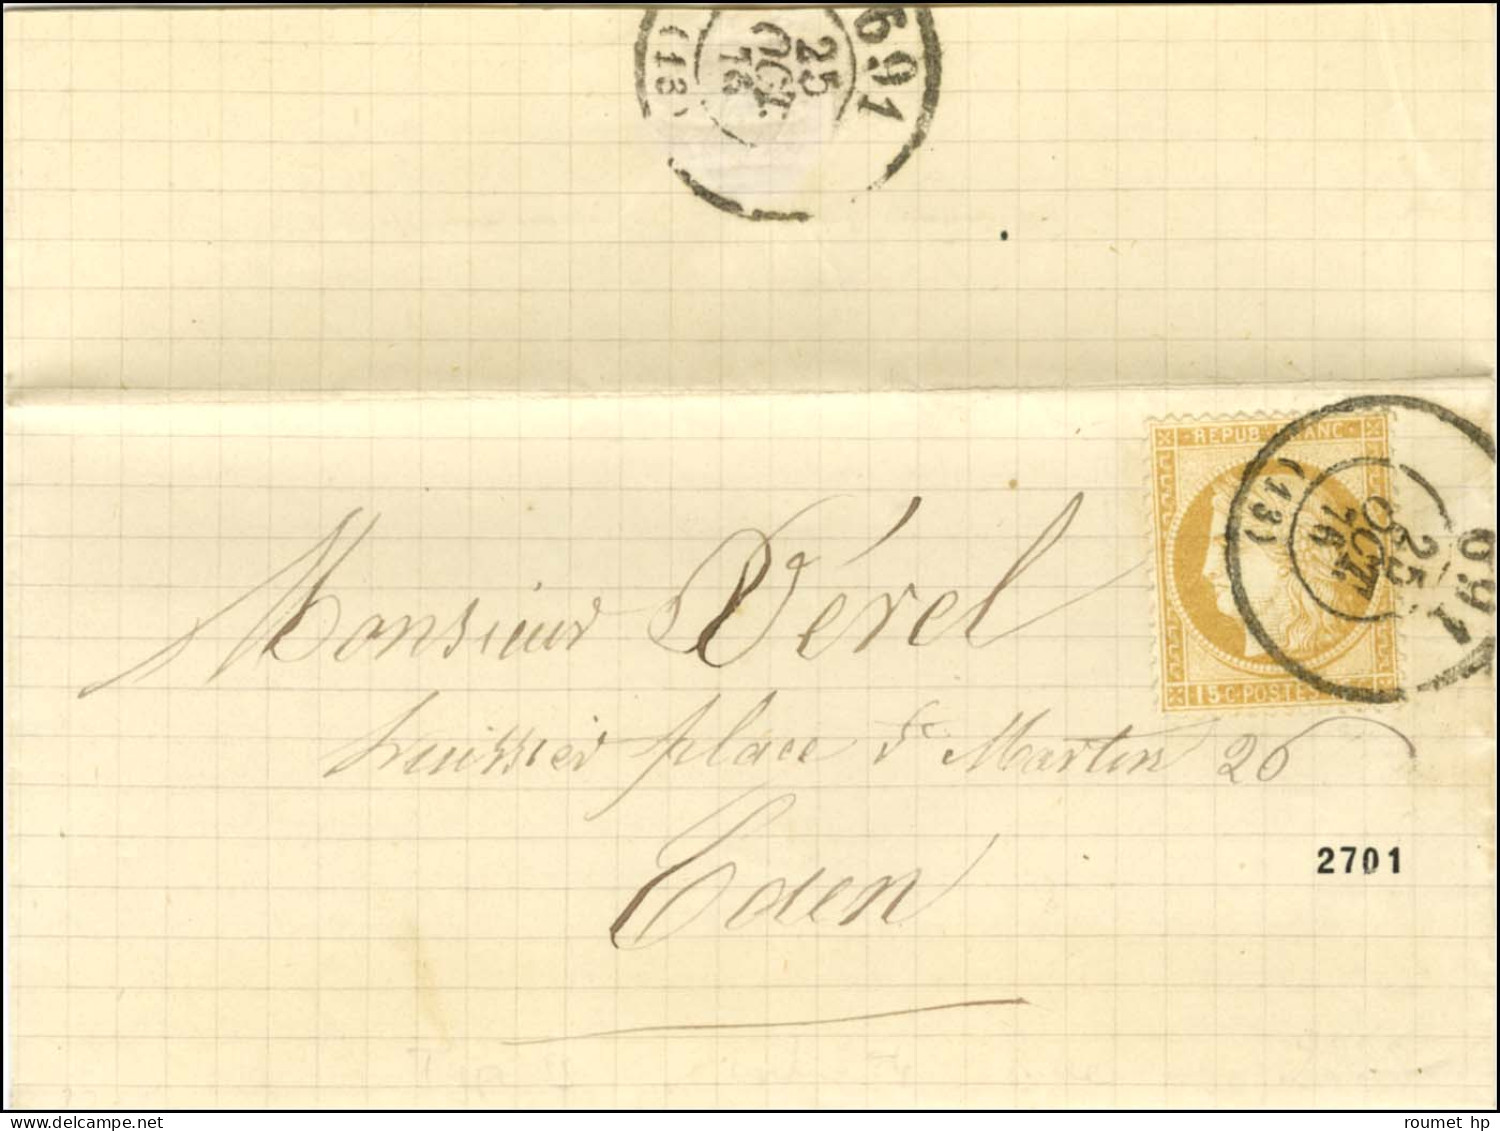 691
25
OCT.
76
(13)
REPUB FRANC
15 C. POSTES
691
25
OCT.
76
(13)
Monsieur Dérel
huissier place St Martin 26
Eden
2701
www.delcampe.net
roumet hp